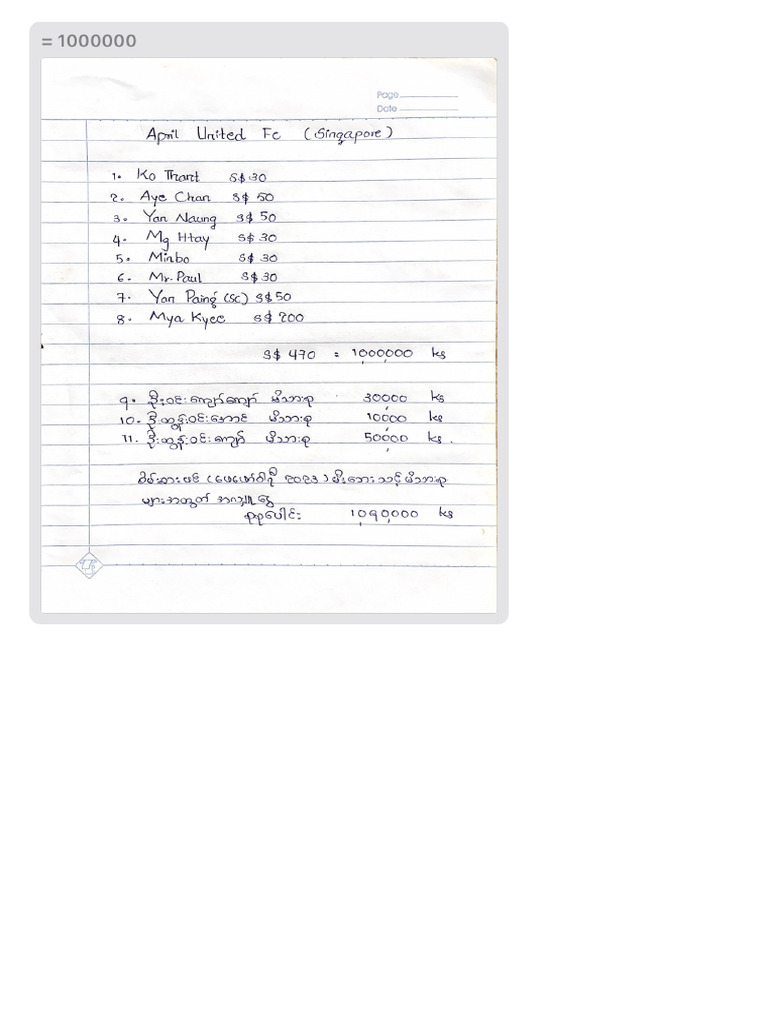 = 1000000
Page
Date
April United Fc (Singapore)
1. Ko Thant S$ 30
2. Aye Chan S$ 50
3. Yan Naung S$ 50
4. Mg Htay S$ 30
5. Minbo S$ 30
6. Mr. Paul S$ 30
7. Yan Paing (SC) S$ 50
8. Mya Kyee S$ 200
S$ 470 = 1000000 ks
9. ဦးဝင်းကျော်ကျော် မိသားစု 30000 ks
10. ဦးထွန်းဝင်းအောင် မိသားစု 10000 ks
11. ဦးထွန်းဝင်းကျော် မိသားစု 50000 ks.
(ဖေဖော်ဝါရီ ၂၀၂၃) မီးဘေးသင့်မိသားစု
များအတွက် အလှူငွေ
စုစုပေါင်း 1090000 ks